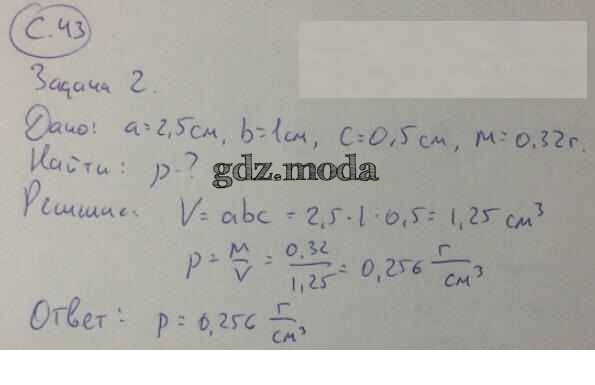 С. 43
Задача 2.
Дано: a=2,5см, b=1см, c=0,5см, м=0,32г.
Найти: p-?
gdz.moda
Решение: V=abc = 2,5·1·0,5= 1,25 см³
p = м/V = 0,32/1,25 = 0,256 г/см³
Ответ: p = 0,256 г/см³